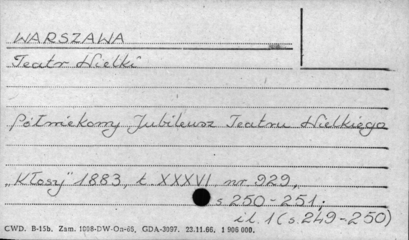 WARSZAWA
Teatr Wielki
Półwiekowy Jubileusz Teatru Wielkiego
„Kłosy" 1883, t. XXXVI, nr 929,
s 250-251;
il. 1 (s. 249-250)
CWD. B-15b. Zam. 1098-DW-On-66, GDA-3097. 23.11.66. 1 906 000.